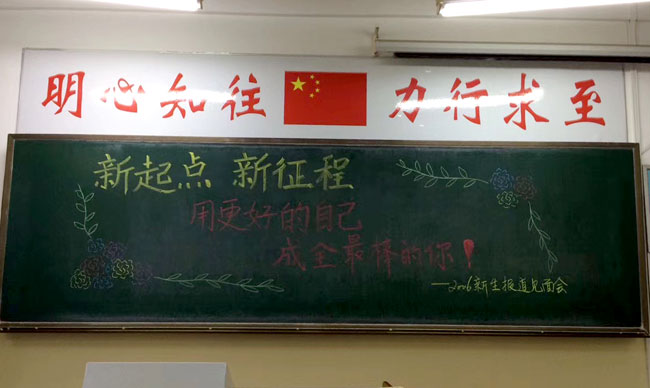 明心知往 力行求至
新起点 新征程
用更好的自己
成全最棒的你!
——2006新生报道见面会